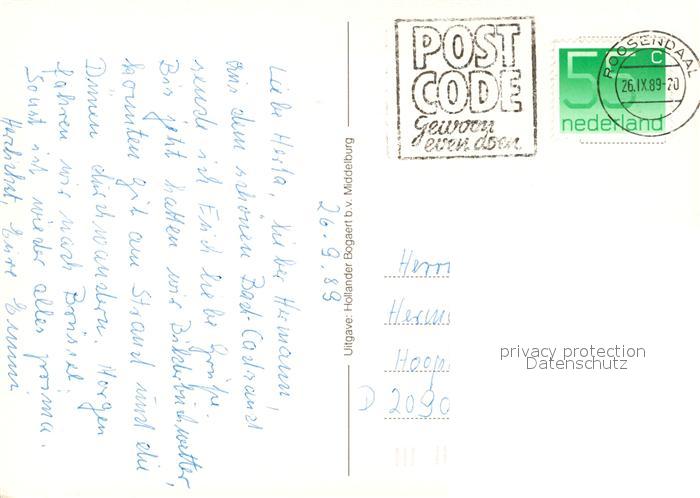 Liebe Herta, lieber Hermann,
aus dem schönen Bad-Cadzand
sende ich Euch liebe Grüße.
Bis jetzt hatten wir Bilderbuchwetter,
konnten gut am Strand und die
Dünen durchwandern. Morgen
fahren wir nach Brüssel.
Sonst ist wieder alles prima.
Herzlichst, Eure Emmi
26.9.89
Uitgave: Hollander Bogaert b.v. Middelburg
POST
CODE
Gewoon
even doen
55 c
nederland
ROOSENDAAL
26.IX.89-20
Herrn
Herm
Hoop
D 2090
privacy protection
Datenschutz